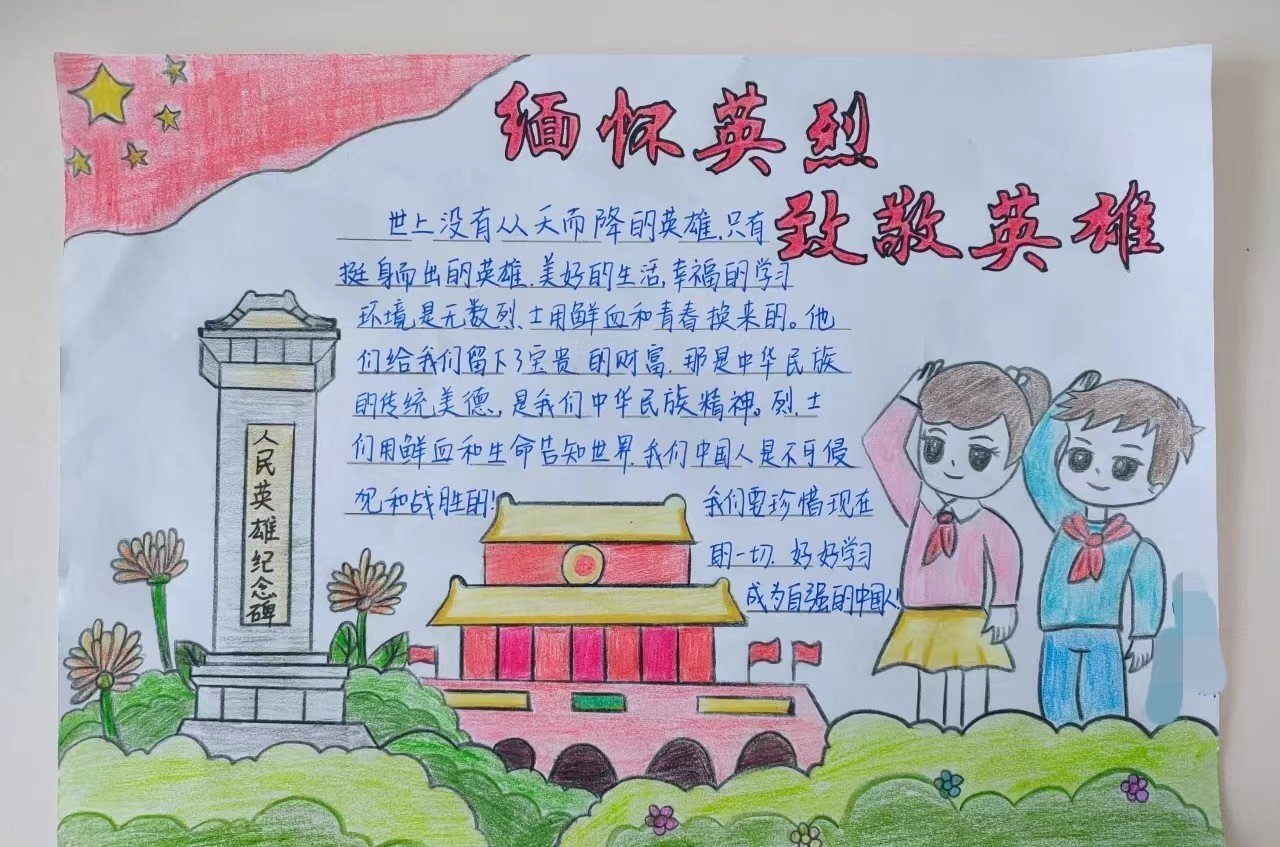 缅怀英烈
致敬英雄
世上没有从天而降的英雄,只有
挺身而出的英雄.美好的生活,幸福的学习
环境是无数烈士用鲜血和青春换来的。他
们给我们留下了宝贵的财富,那是中华民族
的传统美德,是我们中华民族精神。烈士
们用鲜血和生命告知世界,我们中国人是不可侵
犯和战胜的!
我们要珍惜现在
的一切.好好学习
成为自强的中国人!
人民英雄纪念碑